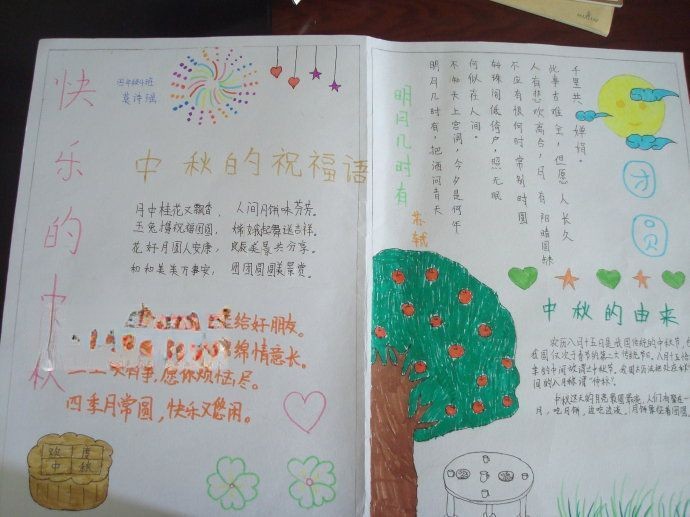 快乐的中秋
四年级4班
中秋的祝福语
月中桂花又飘香， 人间月饼味芬芳。
玉兔捧祝福团圆， 嫦娥起舞送吉祥。
花好月圆人安康， 良辰美景共分享。
和和美美万事安， 团团圆圆美景赏。
给好朋友。
绵情意长。
愿你烦恼尽。
四季月常圆，快乐又悠闲。
欢度
中秋
明月几时有
苏轼
明月几时有，把酒问青天
不知天上宫阙，今夕是何年
何似在人间。
转珠阁低绮户，照无眠
不应有恨何时常别时圆
人有悲欢离合，月有阴晴圆缺
此事古难全，但愿人长久
千里共婵娟。
团圆
中秋的由来
农历八月十五日是我国传统的中秋节，
我国仅次于春节的第二大传统节日。八月十五恰
季的中间故谓之中秋节。我国古历法把处在
间的八月称谓“仲秋”。
中秋这天的月亮最圆最亮，人们
月，吃月饼，